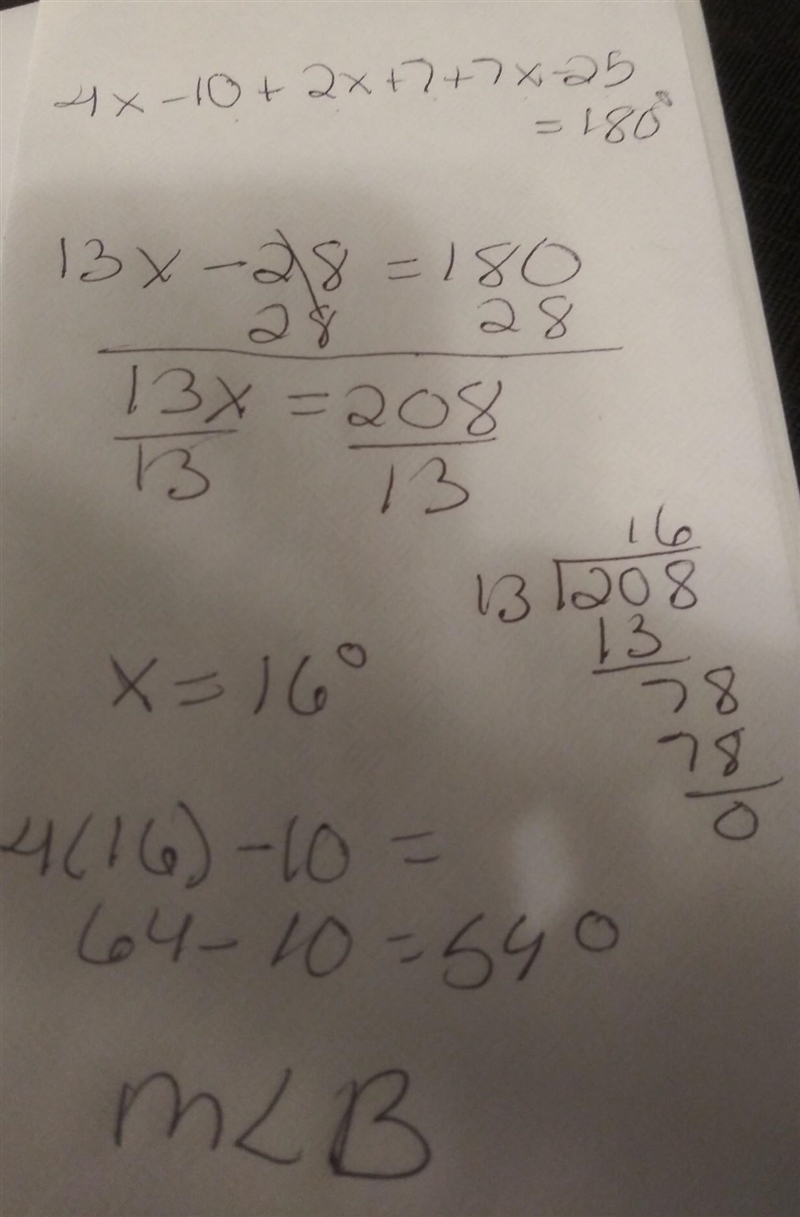 4x - 10 + 2x + 7 + 7x - 25
= 180°
13x - 28 = 180
28 28
13x = 208
13 13
16
13 208
13
x = 16°
78
78
0
4(16) - 10 =
64 - 10 = 54°
m<B